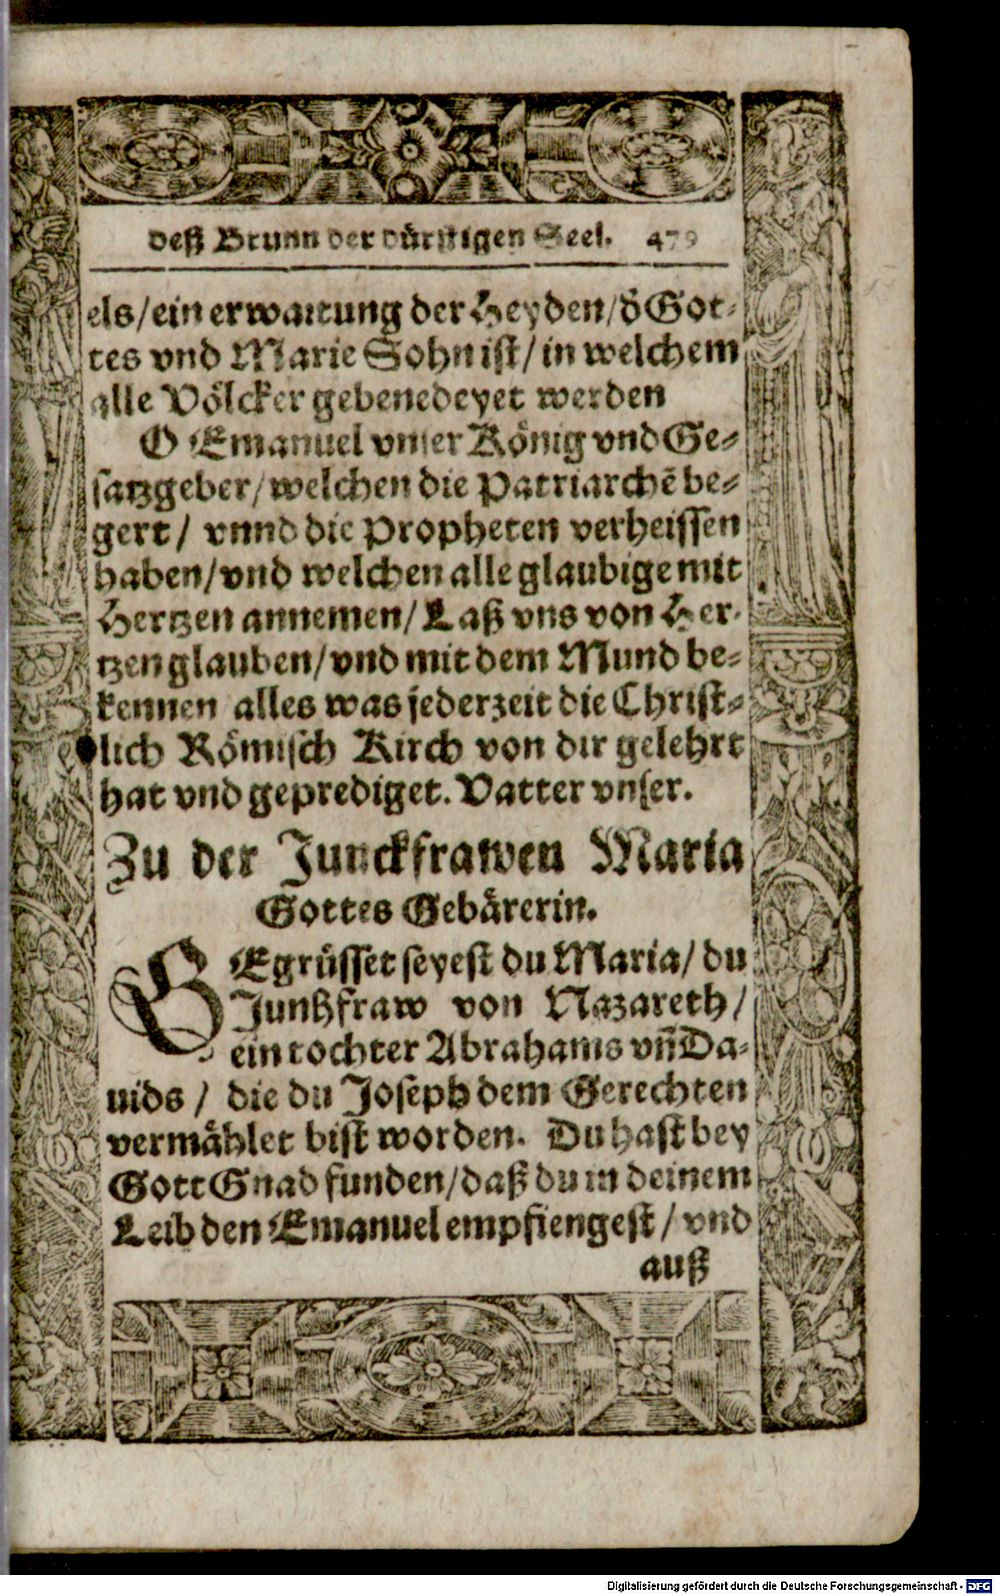 deß Brunn der dürstigen Seel. 479
els/ein erwartung der Heyden/d̄ Got-
tes vnd Marie Sohn ist/in welchem
alle Völcker gebenedeyet werden
O Emanuel vnser König vnd Ge-
satzgeber/welchen die Patriarchē be-
gert/ vnnd die Propheten verheissen
haben/vnd welchen alle glaubige mit
Hertzen annemen/Laß vns von Her-
tzen glauben/vnd mit dem Mund be-
kennen alles was jederzeit die Christ-
lich Römisch Kirch von dir gelehrt
hat vnd geprediget. Vatter vnser.
Zu der Junckfrawen Maria
Gottes Gebärerin.
BEgrüsset seyest du Maria/ du
Junkfraw von Nazareth/
ein tochter Abrahams vn̄ Da-
uids / die du Joseph dem Gerechten
vermählet bist worden. Du hast bey
Gott Gnad funden/daß du in deinem
Leib den Emanuel empfiengest / vnd
auß
Digitalisierung gefördert durch die Deutsche Forschungsgemeinschaft - DFG